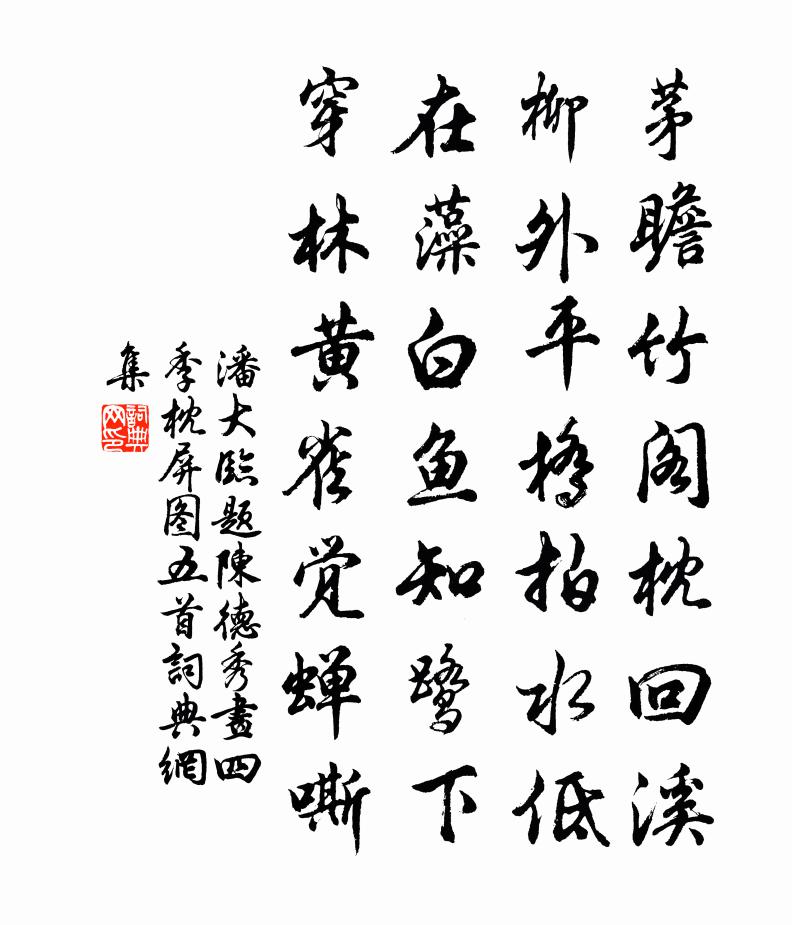 茅瞻竹阁枕回溪
柳外平桥拍水低
在藻白鱼知鹭下
穿林黄雀觉蝉嘶
潘大临题陳德秀畫四
季枕屏图五首詞典網
集
詞典网印